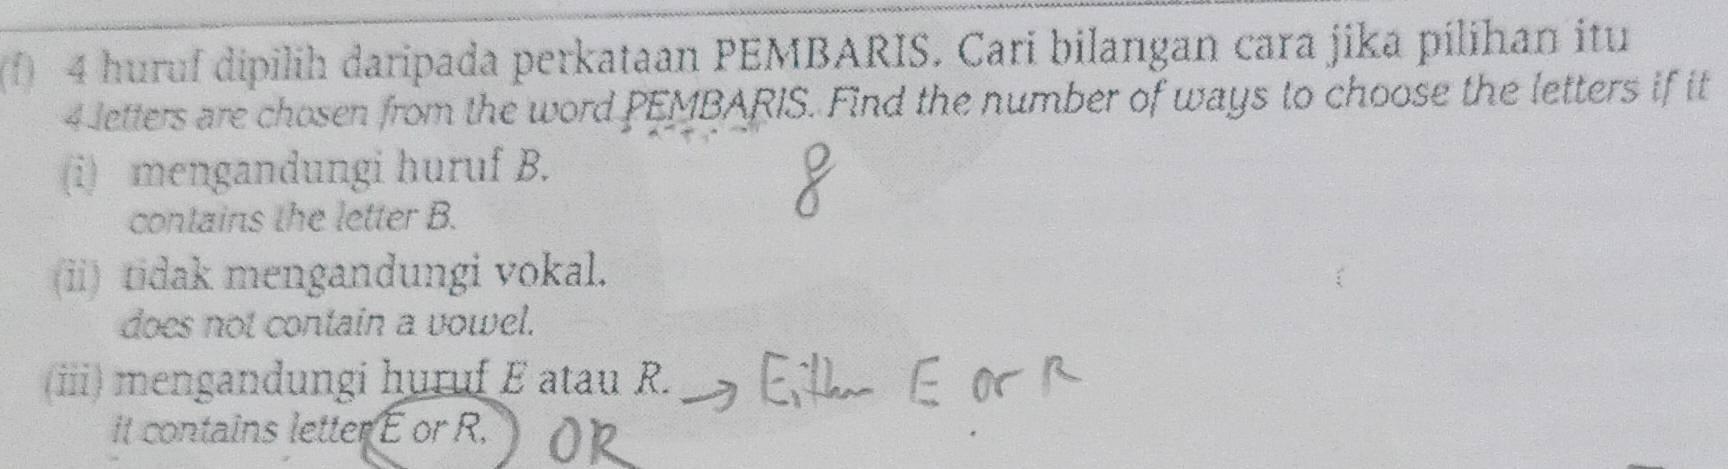 (f) 4 huruf dipilih daripada perkataan PEMBARIS. Cari bilangan cara jika pilihan itu
4 letters are chosen from the word PEMBARIS. Find the number of ways to choose the letters if it
(i) mengandungi huruf B.
8
contains the letter B.
(ii) tidak mengandungi vokal.
does not contain a vowel.
(iii) mengandungi huruf E atau R. → Either E or R
it contains letter E or R. OR